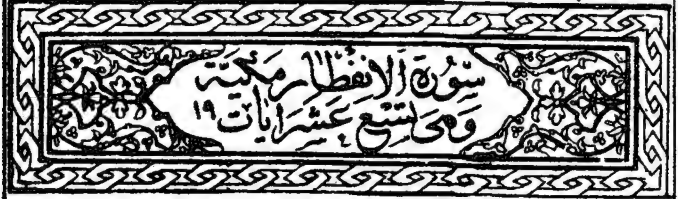 سُورَةُ الِانْفِطَارِ مَكِّيَّةٌ
وَهِىَ تِسْعَ عَشَرَ ايَات ١٩